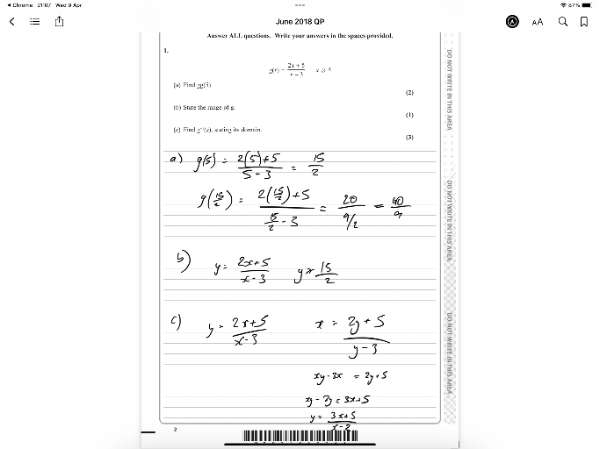 Chrome 21:07 Wed 9 Apr
57%
June 2018 QP
AA
Answer ALL questions. Write your answers in the spaces provided.
1.
g(x) = 2x + 5 / x − 3
(a) Find gg(5)
(2)
(b) State the range of g.
(1)
(c) Find g⁻¹(x), stating its domain.
(3)
a) g(5) = 2(5)+5 / 5-3 = 15/2
g(15/2) = 2(15/2)+5 / 15/2 - 3 = 20 / 9/2 = 40/9
b) y = 2x+5 / x-3 y 15/2
c) y = 2x+5 / x-3 x = 2y+5 / y-3
xy-3x = 2y+5
xy-2y = 3x+5
y = 3x+5 / x-2
2
DO NOT WRITE IN THIS AREA
DO NOT WRITE IN THIS AREA
DO NOT WRITE IN THIS AREA